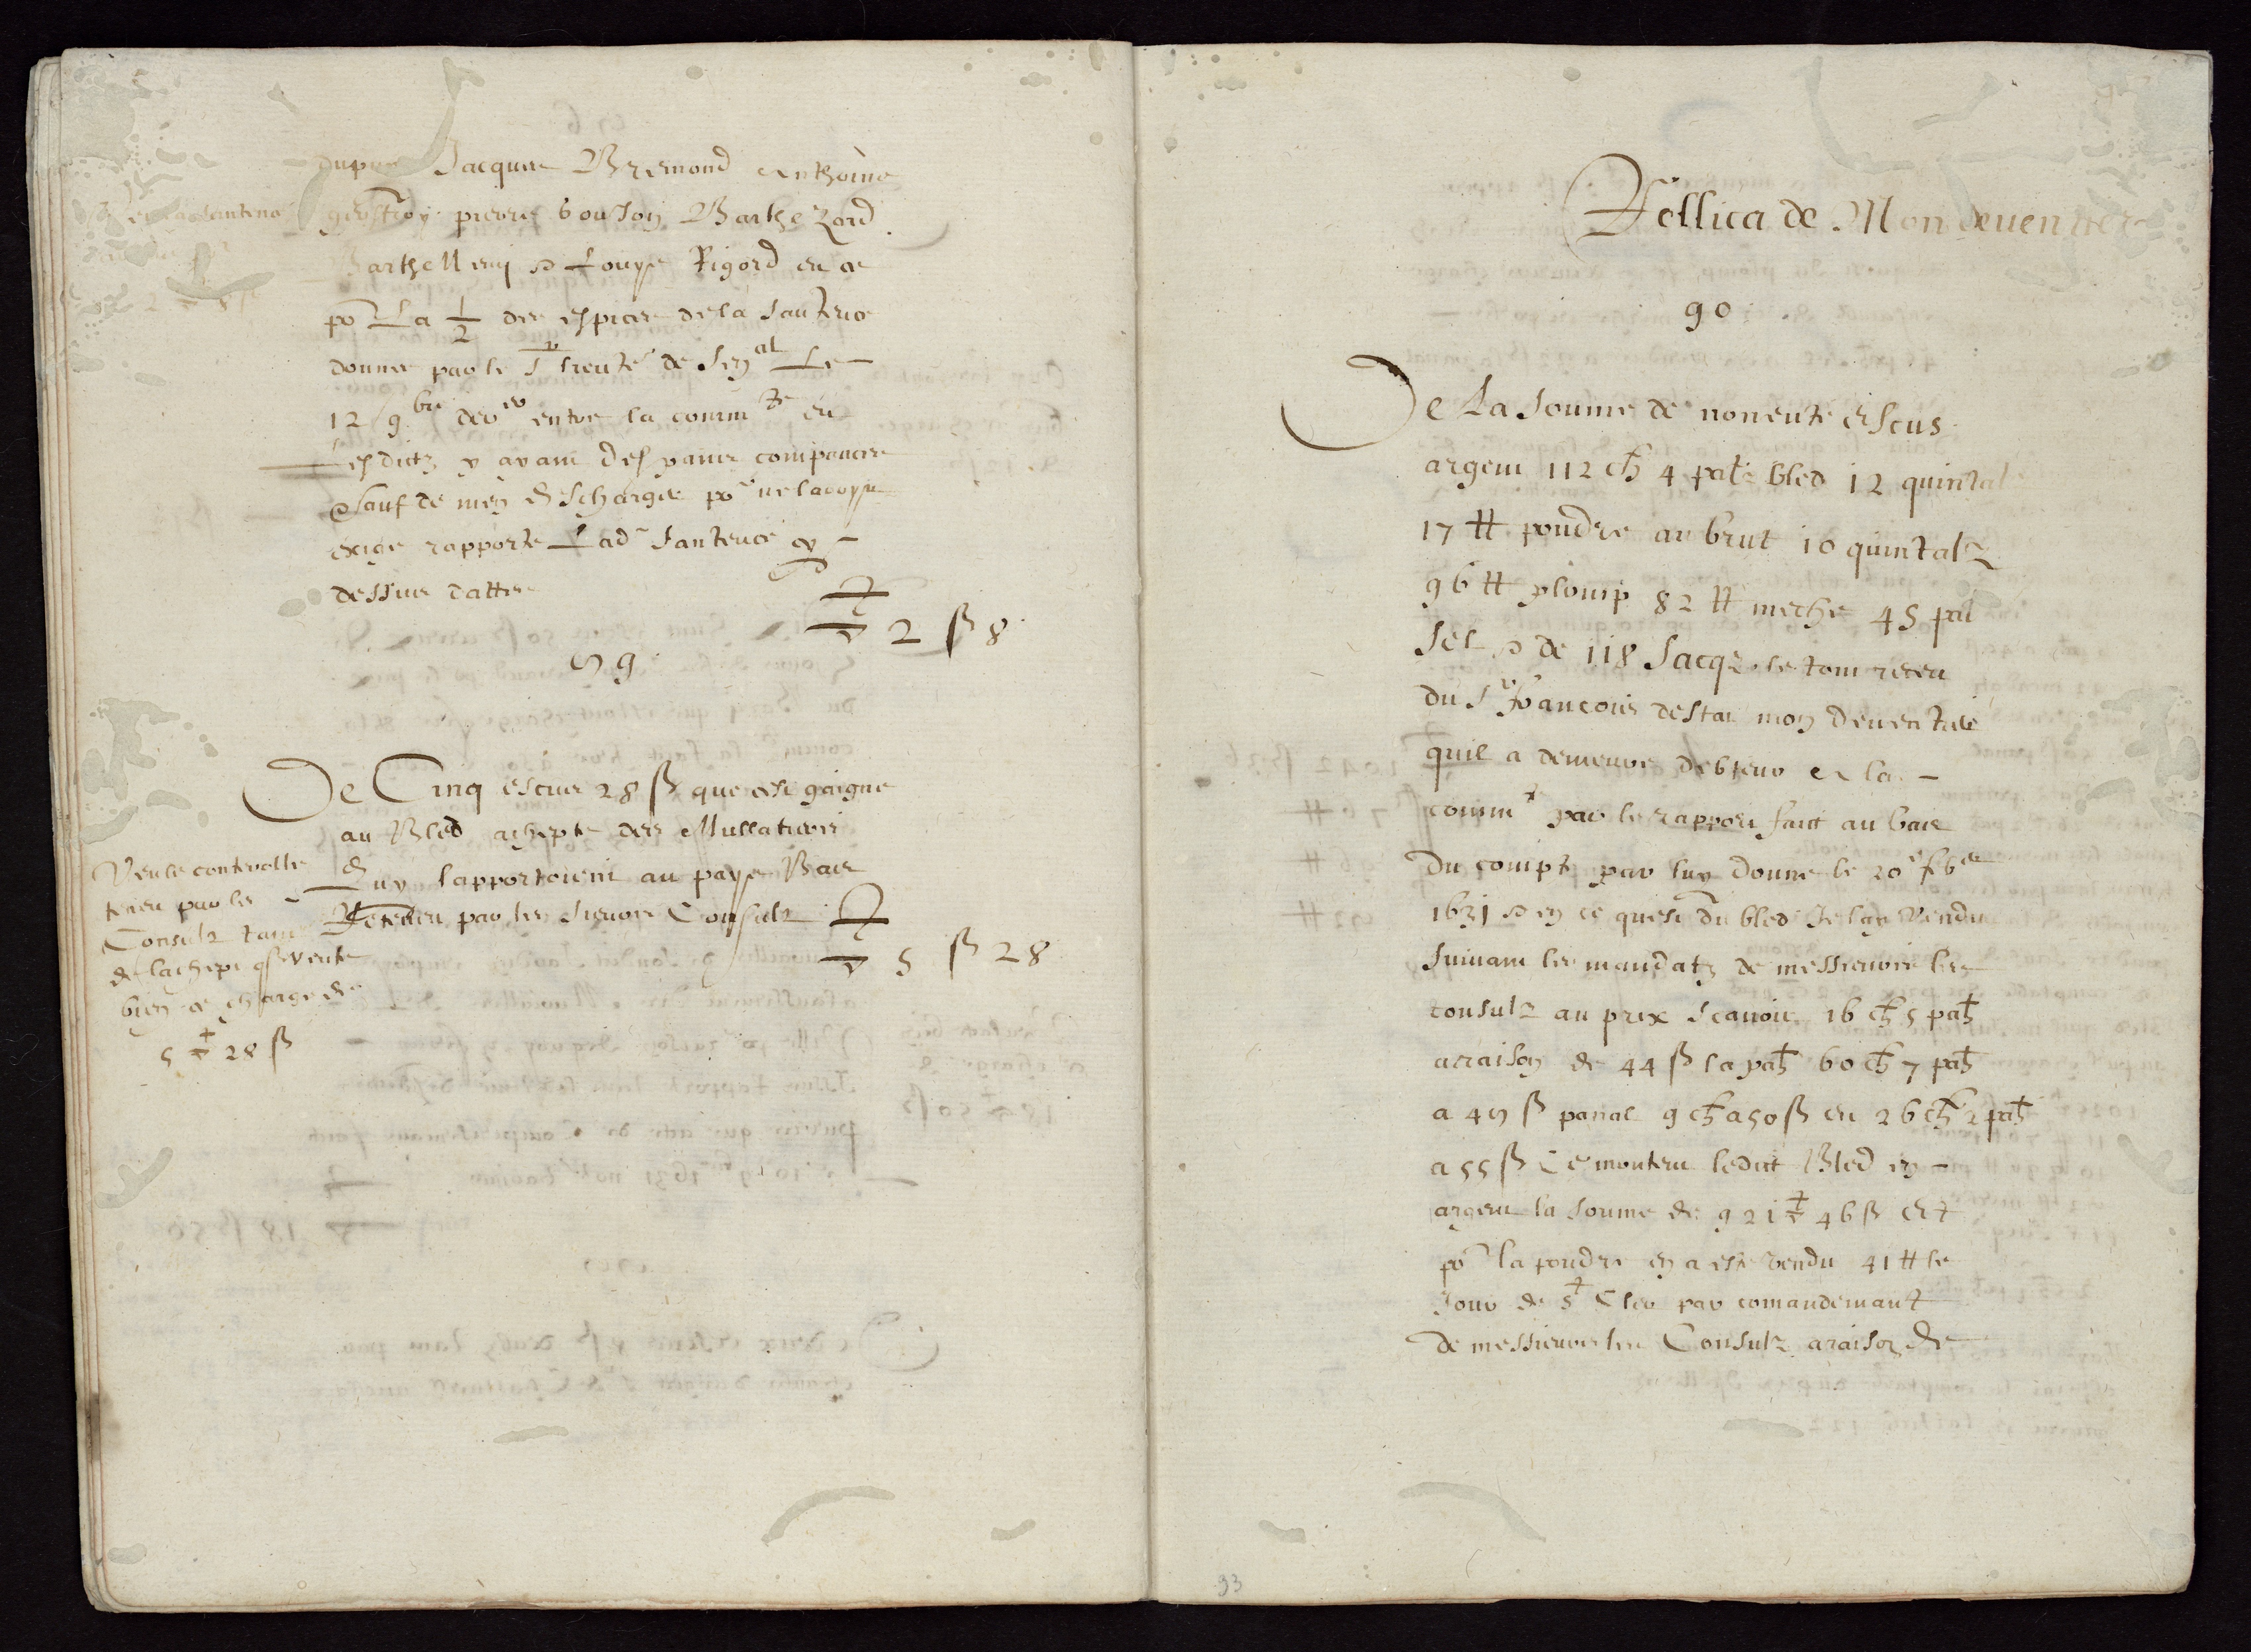 Jacques Bremond Anthoine
geoffroy pierre bouson Barthe Zard
Barthellemy & Louys Rigord en ce
po La 1/2 des espices de la santence
donnee par le Sr lieuten de Senal Le
12 9bre der entre la commte eu
esdictz y ayant des parties comparans
Sauf de men descharger po ne la voyr
exige rapporte Lade santence cy
dessus datter
▽ 2 ß 8
89
De Cinq escus 28 ß que ce gaigne
au Bled achepte des Mullatiers
quy lapportoient au pays Bas
Retenu par les sieurs Consulz
▽ 5 ß 28
Veu le controlle
tenu par les
Consulz tant
de lachept que vente
bien ce charge de
5 ▽ 28 ß
Pellica de Mon devencier
90
De La Somme de nonente escus
argent 112 ch 4 patz bled 12 quintal
17 ℔ poudre au brut 10 quintalz
96 ℔ plomp 82 ℔ meche 45 pal
sel & de 118 Sacqz le tout receu
du Sr francois destat mon devencier
quil a demeure debteur a la
commte par le rapport faict au bas
du compte par luy donne le 20e fber
1631 & en ce quest du bled Je lay Vendu
suivant les mandatz de messieurs les
consulz au prix Scavoir 16 ch 5 pah
a raison de 44 ß la pah 60 ch 7 pah
a 48 ß panal 9 ch a 50 ß eu 26 ch 2 pah
a 55 ß Ce monteru ledict Bled en
argent la somme de 921 ▽ 46 ß Et
po la poudre en a este vendu 41 ℔ le
Jour de St Cler par comandemant
de messieurs les Consulz a raison de
93